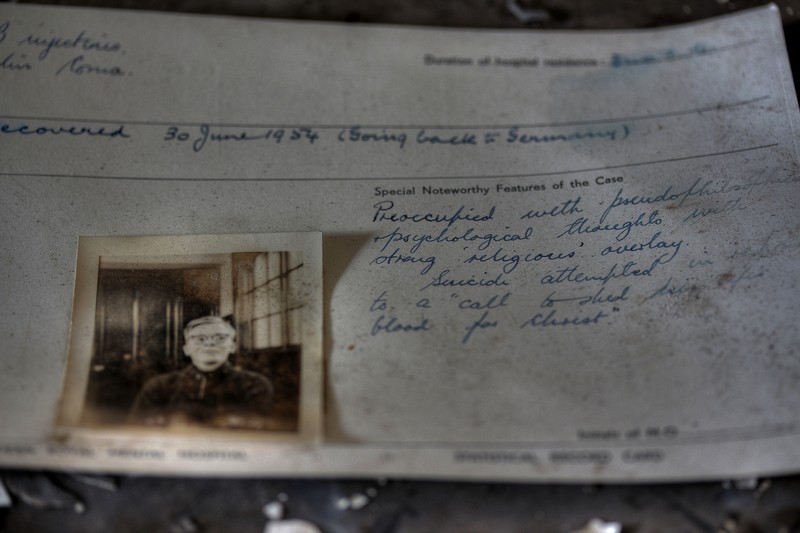 injections,
Coma.
Duration of hospital residence:
ecovered 30 June 1954 (Going back to Germany)
Special Noteworthy Features of the Case
Preoccupied with
psychological thoughts with
strong 'religious' overlay.
Suicide attempted in
to a "call to shed
blood for Christ"
Initials of M.O.
MENTAL HOSPITAL
STATISTICAL RECORD CARD